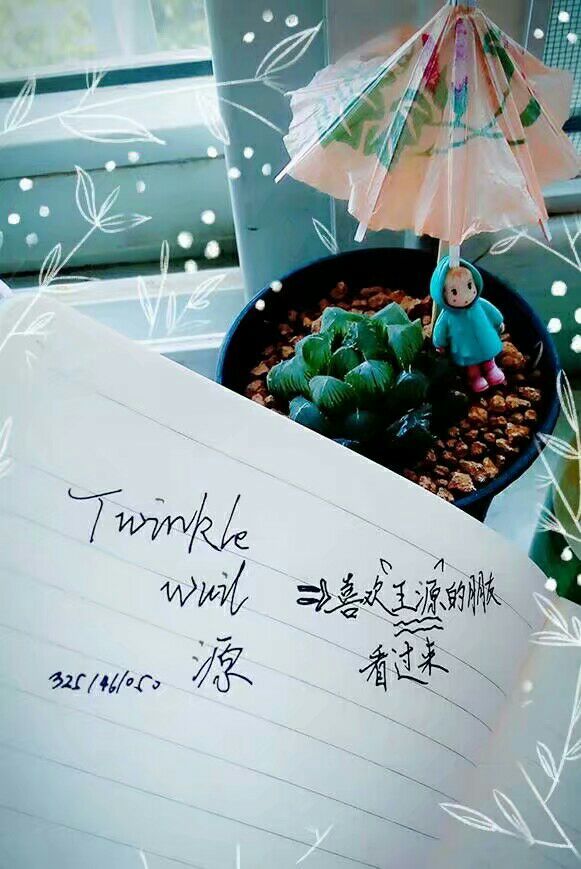 Twinkle
wuil
源
325146050
⇒喜欢"王源"的朋友
看过来